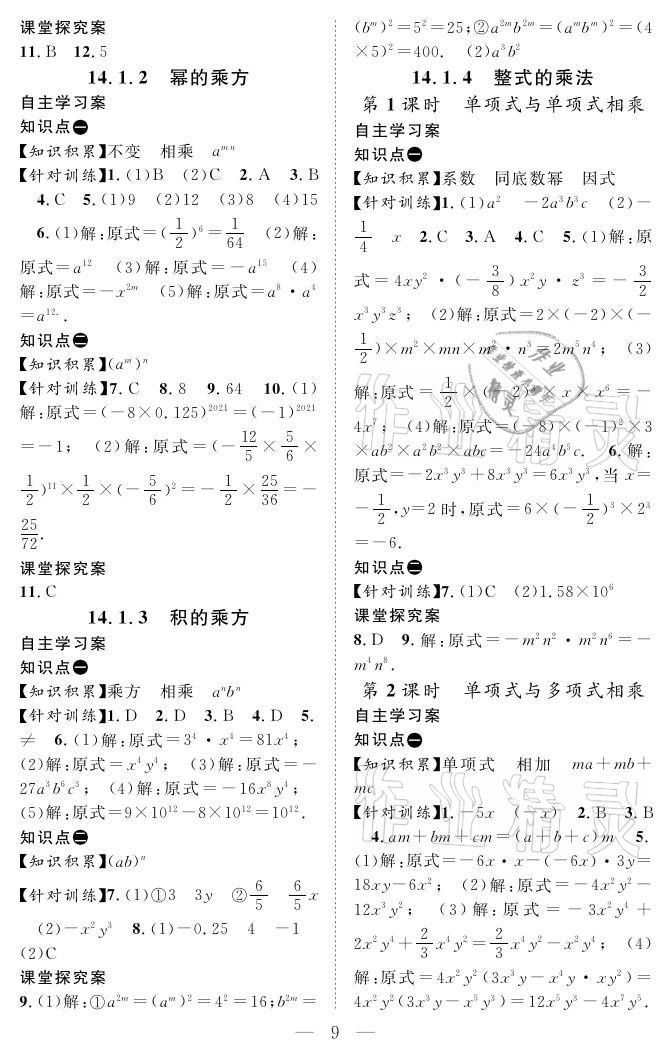 课堂探究案
11. B　12. 5
14.1.2　幂的乘方
自主学习案
知识点㊀
【知识积累】不变　相乘　aᵐⁿ
【针对训练】1. (1)B　(2)C　2. A　3. B
4. C　5. (1)9　(2)12　(3)8　(4)15
6. (1)解:原式=(1/2)⁶=1/64　(2)解:
原式=a¹²　(3)解:原式=-a¹⁵　(4)
解:原式=-x²ᵐ　(5)解:原式=a⁸·a⁴
=a¹².
知识点㊁
【知识积累】(aᵐ)ⁿ
【针对训练】7. C　8. 8　9. 64　10. (1)
解:原式=(-8×0.125)²⁰²¹=(-1)²⁰²¹
=-1;　(2)解:原式=(-12/5×5/6×
1/2)¹¹×1/2×(-5/6)²=-1/2×25/36=-
25/72.
课堂探究案
11. C
14.1.3　积的乘方
自主学习案
知识点㊀
【知识积累】乘方　相乘　aⁿbⁿ
【针对训练】1. D　2. D　3. B　4. D　5.
≠　6. (1)解:原式=3⁴·x⁴=81x⁴;
(2)解:原式=x⁴y⁴;　(3)解:原式=-
27a³b⁶c³;　(4)解:原式=-16x⁸y⁴;
(5)解:原式=9×10¹²-8×10¹²=10¹².
知识点㊁
【知识积累】(ab)ⁿ
【针对训练】7. (1)①3　3y　②6/5　6/5x
(2)-x²y³　8. (1)-0.25　4　-1
(2)C
课堂探究案
9. (1)解:①a²ᵐ=(aᵐ)²=4²=16;b²ᵐ=
(bᵐ)²=5²=25;②a²ᵐb²ᵐ=(aᵐbᵐ)²=(4
×5)²=400.　(2)a³b²
14.1.4　整式的乘法
第1课时　单项式与单项式相乘
自主学习案
知识点㊀
【知识积累】系数　同底数幂　因式
【针对训练】1. (1)a²　-2a³b³c　(2)-
1/4　x　2. C　3. A　4. C　5. (1)解:原
式=4xy²·(-3/8)x²y·z³=-3/2
x³y³z³;　(2)解:原式=2×(-2)×(-
1/2)×m²×mn×m²·n³=2m⁵n⁴;　(3)
解:原式=1/2×(-2)³×x×x⁶=-
4x⁷;　(4)解:原式=(-8)×(-1)²×3
×ab²×a²b²×abc=-24a⁴b⁵c.　6. 解:
原式=-2x³y³+8x³y³=6x³y³,当x=
-1/2,y=2时,原式=6×(-1/2)³×2³
=-6.
知识点㊁
【针对训练】7. (1)C　(2)1.58×10⁶
课堂探究案
8. D　9. 解:原式=-m²n²·m²n⁶=-
m⁴n⁸.
第2课时　单项式与多项式相乘
自主学习案
知识点㊀
【知识积累】单项式　相加　ma+mb+
mc
【针对训练】1. -5x　(-x)　2. B　3. B
4. am+bm+cm=(a+b+c)m　5.
(1)解:原式=-6x·x-(-6x)·3y=
18xy-6x²;　(2)解:原式=-4x²y²-
12x³y²;　(3)解:原式=-3x²y⁴+
2x²y⁴+2/3x⁴y²=2/3x⁴y²-x²y⁴;　(4)
解:原式=4x²y²(3x³y-x⁴y·xy²)=
4x²y²(3x³y-x⁵y³)=12x⁵y³-4x⁷y⁵.
— 9 —
作业精灵
作业精灵